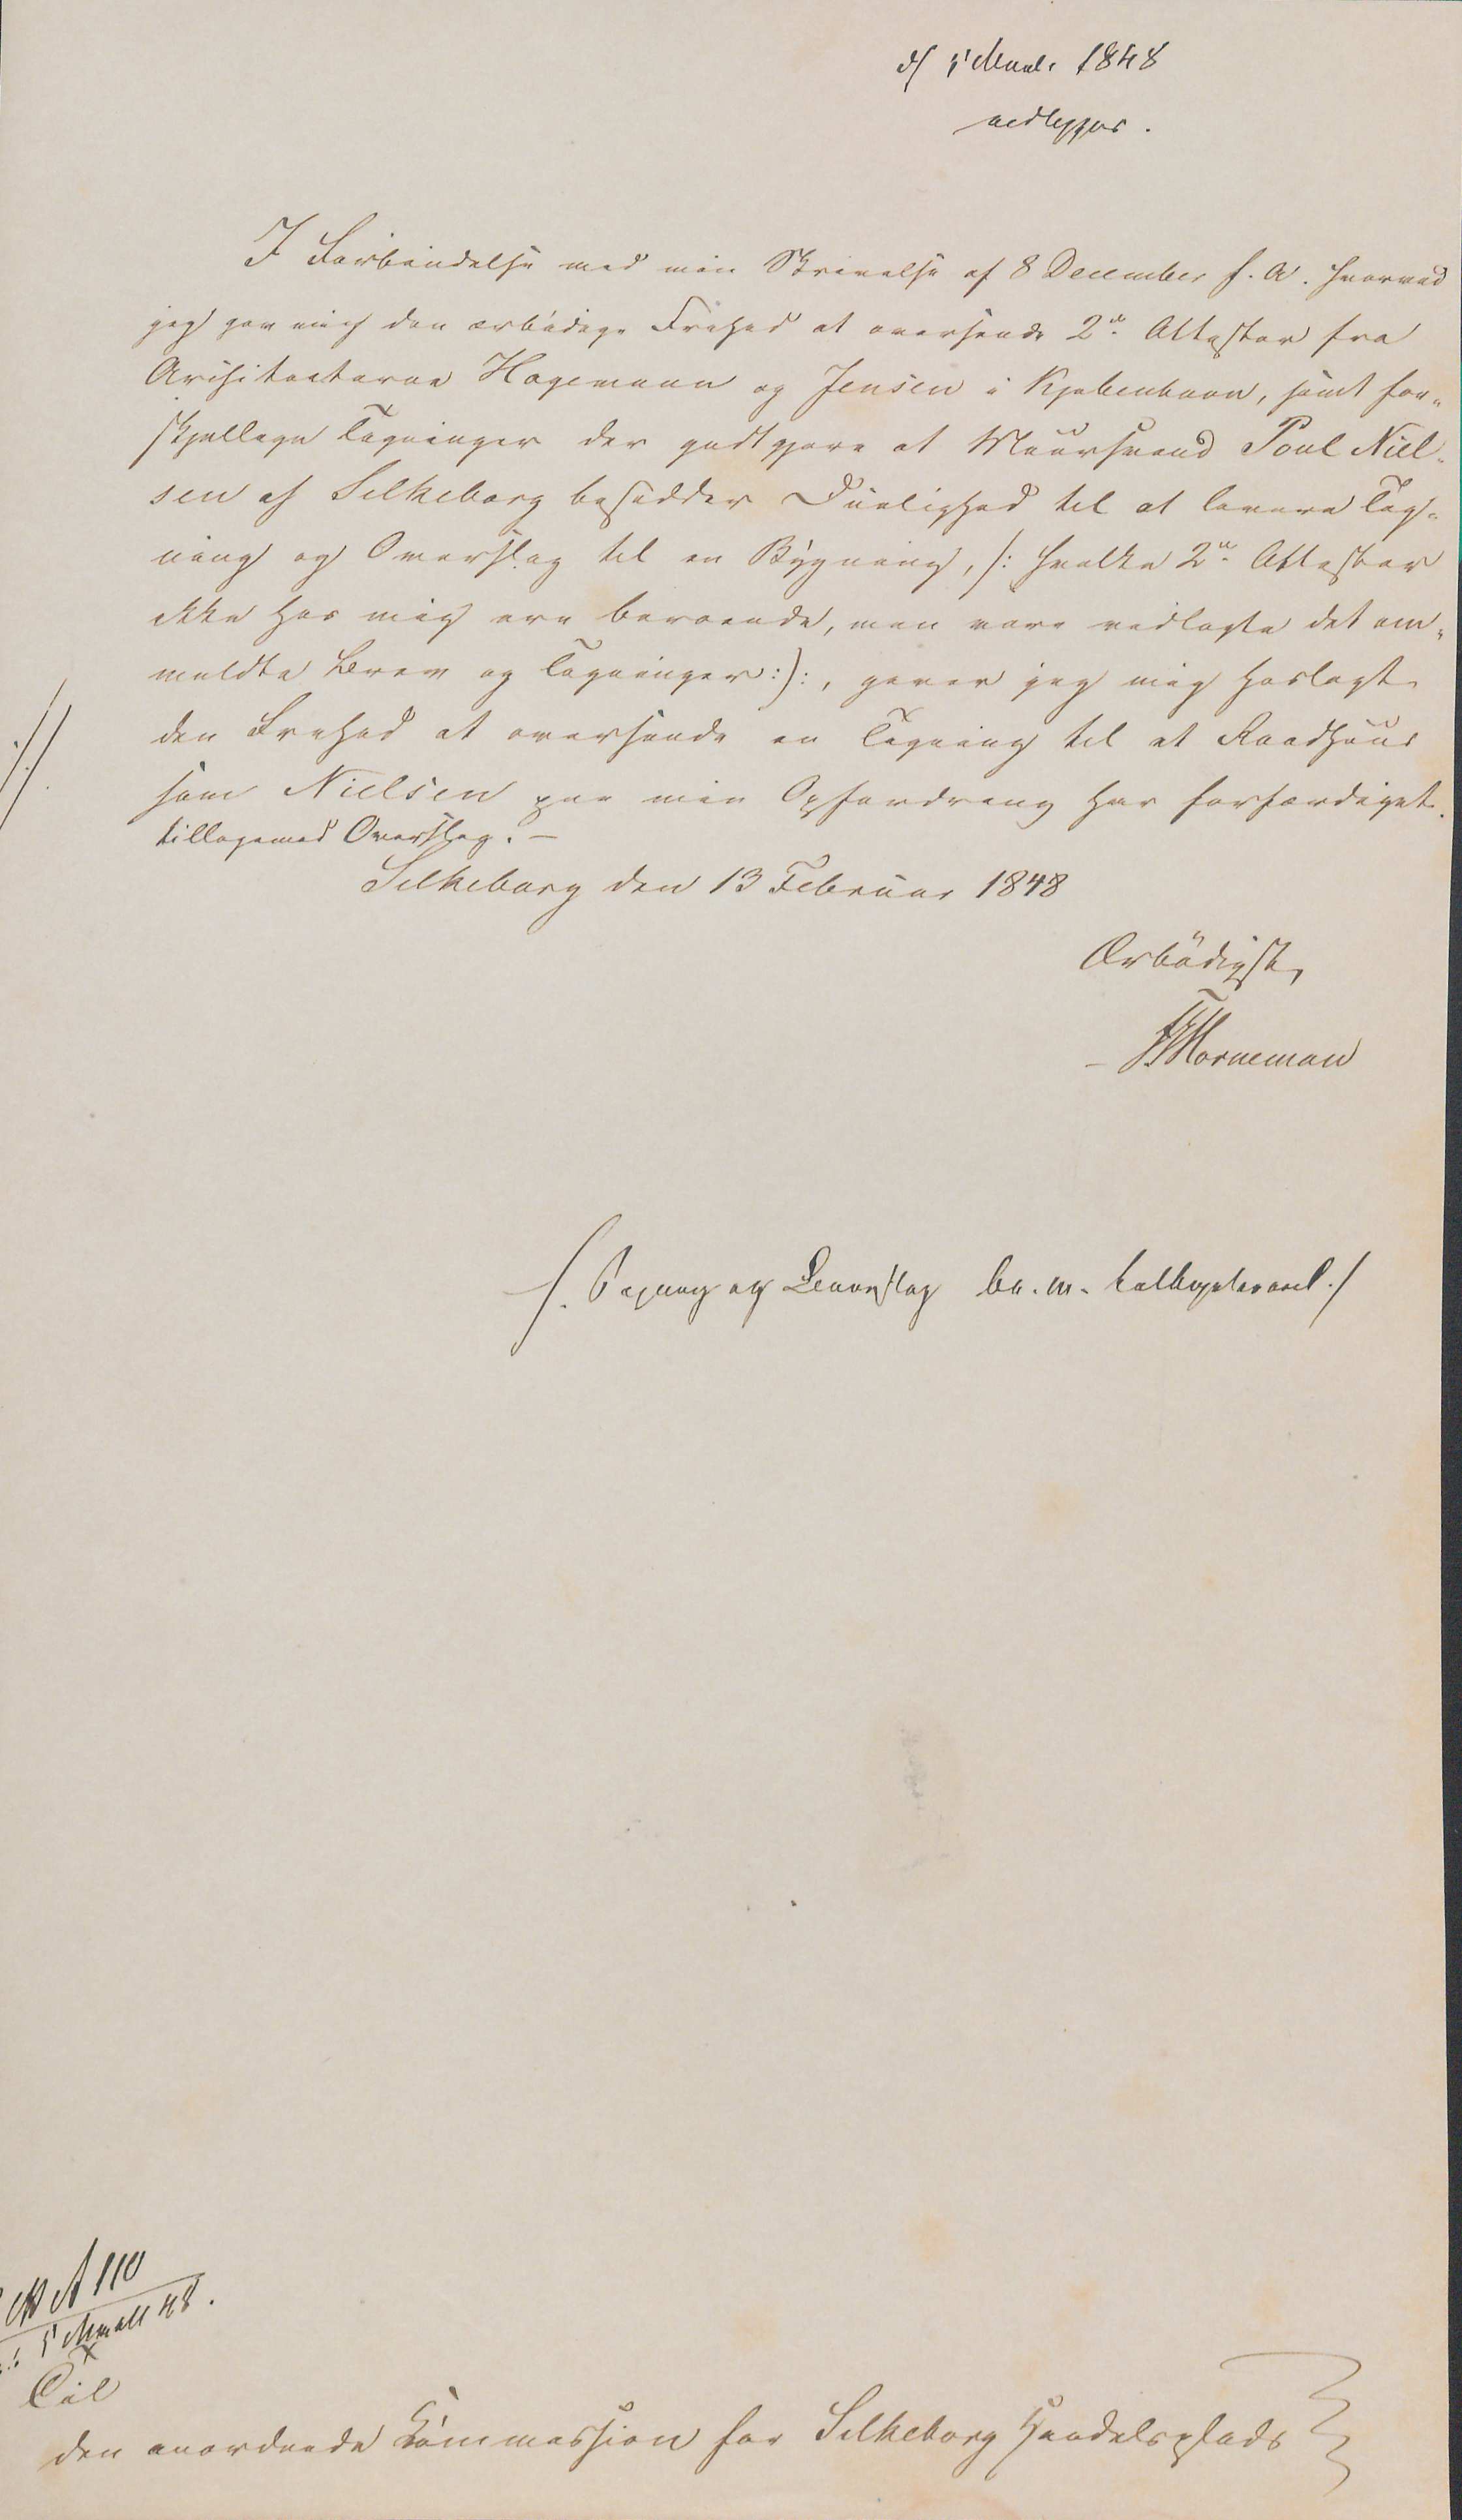 d 5 Marts 1848
vedlægges.
I Forbindelse med min Skrivelse af 8 December f. A. hvorved
jeg gav mig den ærbødige Frihed at oversende 2de Attester fra
Architecterne Hagemann og Jensen i Kjøbenhavn, samt for-
skjellige Tegninger der godtgjøre at Muursvend Poul Niel-
sen af Silkeborg besidder Duelighed til at levere Teg-
ning og Overslag til en Bygning, /: hvilke 2de Attester
ikke hos mig ere beroende, men vare vedlagte det om-
meldte Brev og Tegninger :/:, giver jeg mig hoslagt
den Frihed at oversende en Tegning til et Raadhuus
som Nielsen paa min Opfordring har forfærdiget.
tilligemed Overslag. —
Silkeborg den 13 Februar 1848
Ærbødigst,
Horneman
/. Tegning og Overslag br. m. tilbageleveret ./
A 110
5 48.
Til
den anordnede Kommission for Silkeborg Handelsplads